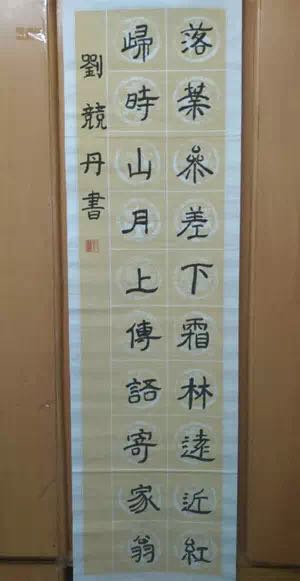 落葉參差下霜林遠近紅
歸時山月上傳語寄家翁
劉競丹書